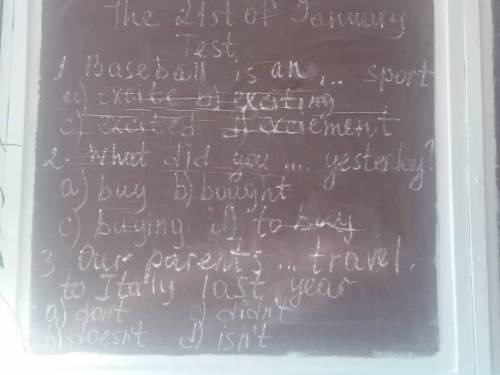 The 21st of January
Test
1. Baseball is an ... sport
a) excite b) exciting
c) excited d) exciement
2. What did you ... yesterday?
a) buy b) bought
c) buying d) to buy
3 Our parents ... travel
to Italy last year
a) don't c) didn't
b) doesn't d) isn't